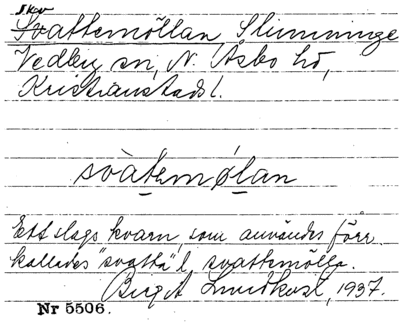 skv
Svattemöllan, Slimminge
Vedby sn, N. Åsbo hd,
Kristianstads l.
svàtemǿlan
Ett slags kvarn, som användes förr
kallades "svatta" l. svattemölla.
Birgit Lundkvist, 1937.
Nr 5506.